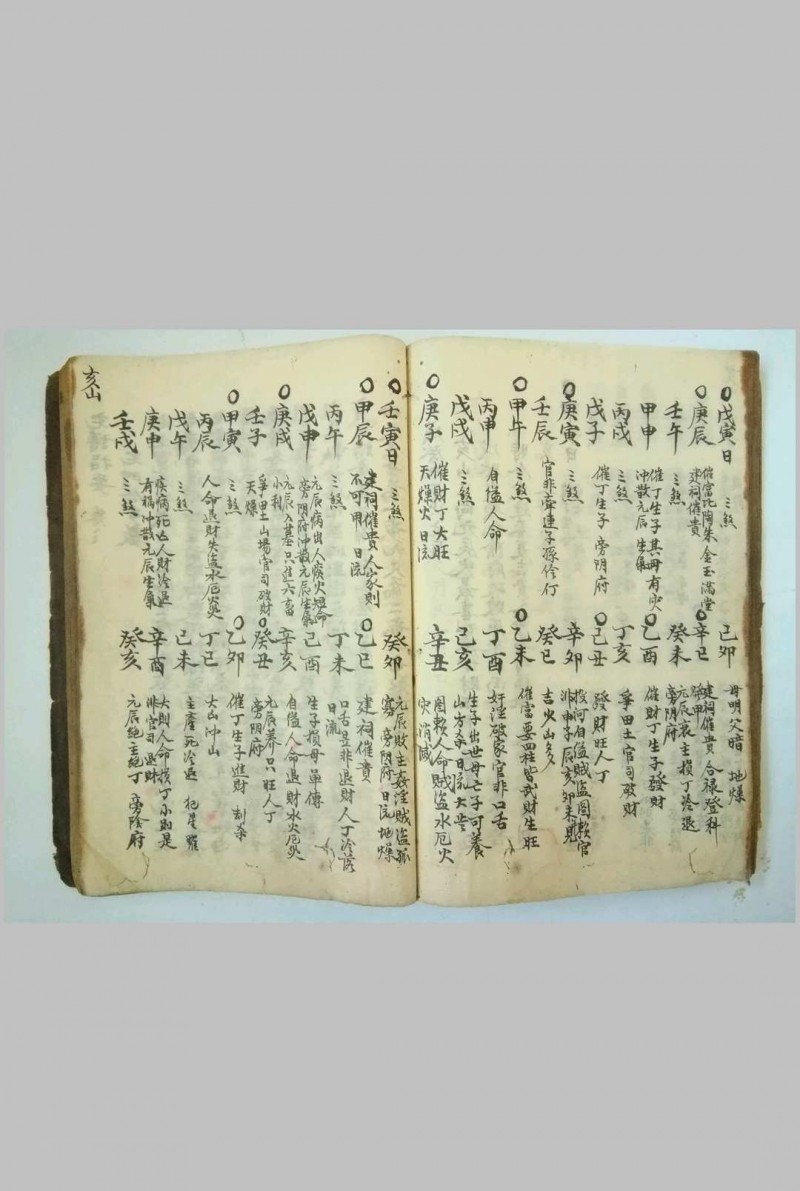 戊寅日 三煞
己卯 毋明父暗 地燥
庚辰 催富比陶朱金玉滿堂 建祠催貴
辛巳 建祠催貴 合禄登科
壬午 三煞
癸未 元辰衰主損丁冷退 旁阴府
甲申 催丁生子其母有灾 冲散元辰生氣
乙酉 催財丁生子發財
丙戌 三煞
丁亥 爭田土官司破財
戊子 催丁生子 旁阴府
己丑 發財旺人丁
庚寅 三煞
辛卯 投河自溢賊盗图赖官非 申子辰亥卯未見
壬辰 官非牽連子孫伶仃
癸巳 吉火山多
甲午 三煞
乙未 催富要四柱皆武財生旺
丙申 自溢人命
丁酉 奸淫破家官非口舌
戊戌 三煞
己亥 生子出世母亡子可養 山方杀日流大岦
庚子 催財丁大旺 天燥火 日流
辛丑 图赖人命賊盗水厄火灾消滅
壬寅日 三煞
癸卯 元辰敗主姦淫賊盗孤寡 旁阴府 日流地燥
甲辰 建祠催貴人家則不可用 日流
乙巳 建祠催貴
丙午 三煞
丁未 口舌是非退財人丁冷落 日流
戊申 元辰病出人痰火短命 旁阴府冲散元辰生氣
己酉 生子損母單傳
庚戌 元辰入墓只進六畜小利
辛亥 自溢人命退財水火厄灾
壬子 爭田土山場官司破財 天燥
癸丑 元辰养只旺人丁 旁阴府
甲寅 三煞
乙卯 催丁生子進財 刦杀
丙辰 人命退財失盗水厄灾
丁巳 大凶冲山
戊午 三煞
己未 主產死冷退 犯星曜
庚申 疾病死亡人財冷退 有禍冲散元辰生氣
辛酉 大則人命損丁小則是非官司退財
壬戌 三煞
癸亥 元辰絶主絶丁 旁陰府
亥山